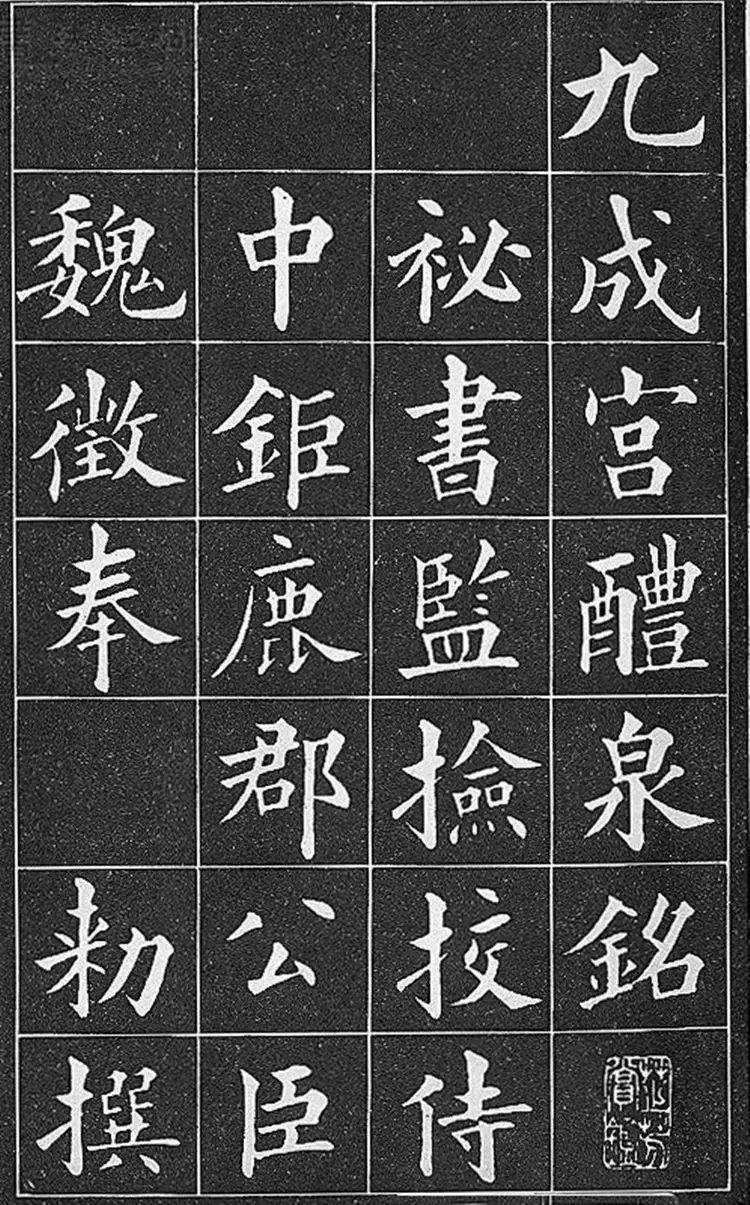 九成宫醴泉銘
祕書監撿挍侍
中鉅鹿郡公臣
魏徵奉 勑撰